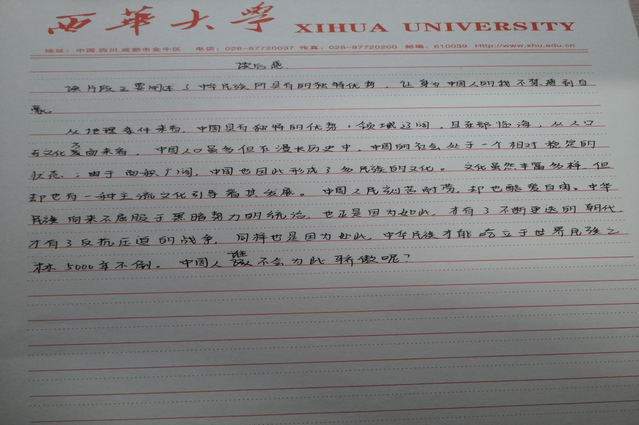 西華大學 XIHUA UNIVERSITY
地址：中国.四川.成都市金牛区 电话：028-87720037 传真：028-87720200 邮编：610039 Http://www.xhu.edu.cn
读后感
该片段主要阐述了中华民族所具有的独特优势，让身为中国人的我不禁感到自
豪。
从地理条件来看，中国具有独特的优势，领域辽阔，且东部临海，从人口
与文化方面来看，中国人口虽多但在漫长历史中，中国的社会处于一个相对稳定的
状态；由于面积广阔，中国也因此形成了多民族的文化。文化虽然丰富多样，但
却也有一种主流文化引导着其发展。中国人民刻苦耐劳，却也酷爱自由。中华
民族向来不屈服于黑暗势力的统治，也正是因为如此，才有了不断更迭的朝代，
才有了反抗压迫的战争，同样也是因为如此，中华民族才能屹立于世界民族之
林5000年不倒。中国人谁又不会为此骄傲呢？